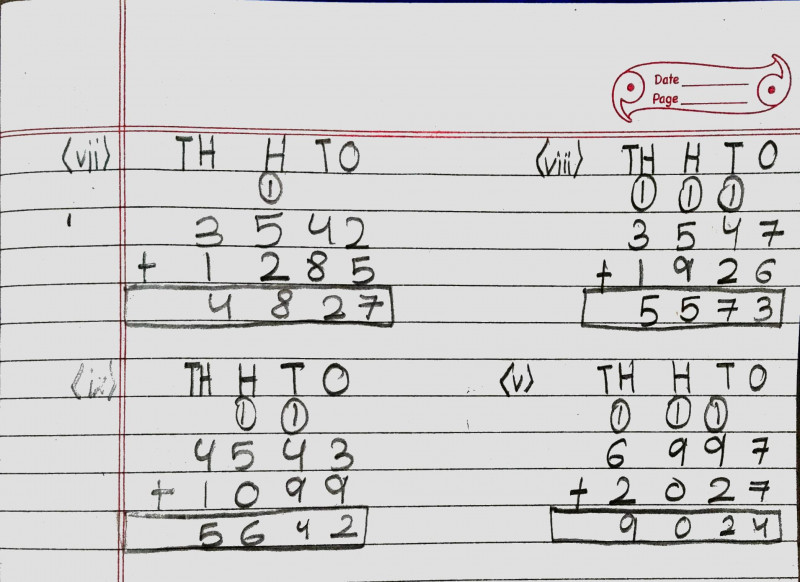 Date
Page
(vii) TH H T O (viii) TH H T O
1 1 1 1
3 5 4 2 3 5 4 7
+ 1 2 8 5 + 1 9 2 6
4 8 2 7 5 5 7 3
(ix) TH H T O (v) TH H T O
1 1 1 1 1
4 5 4 3 6 9 9 7
+ 1 0 9 9 + 2 0 2 7
5 6 4 2 9 0 2 4